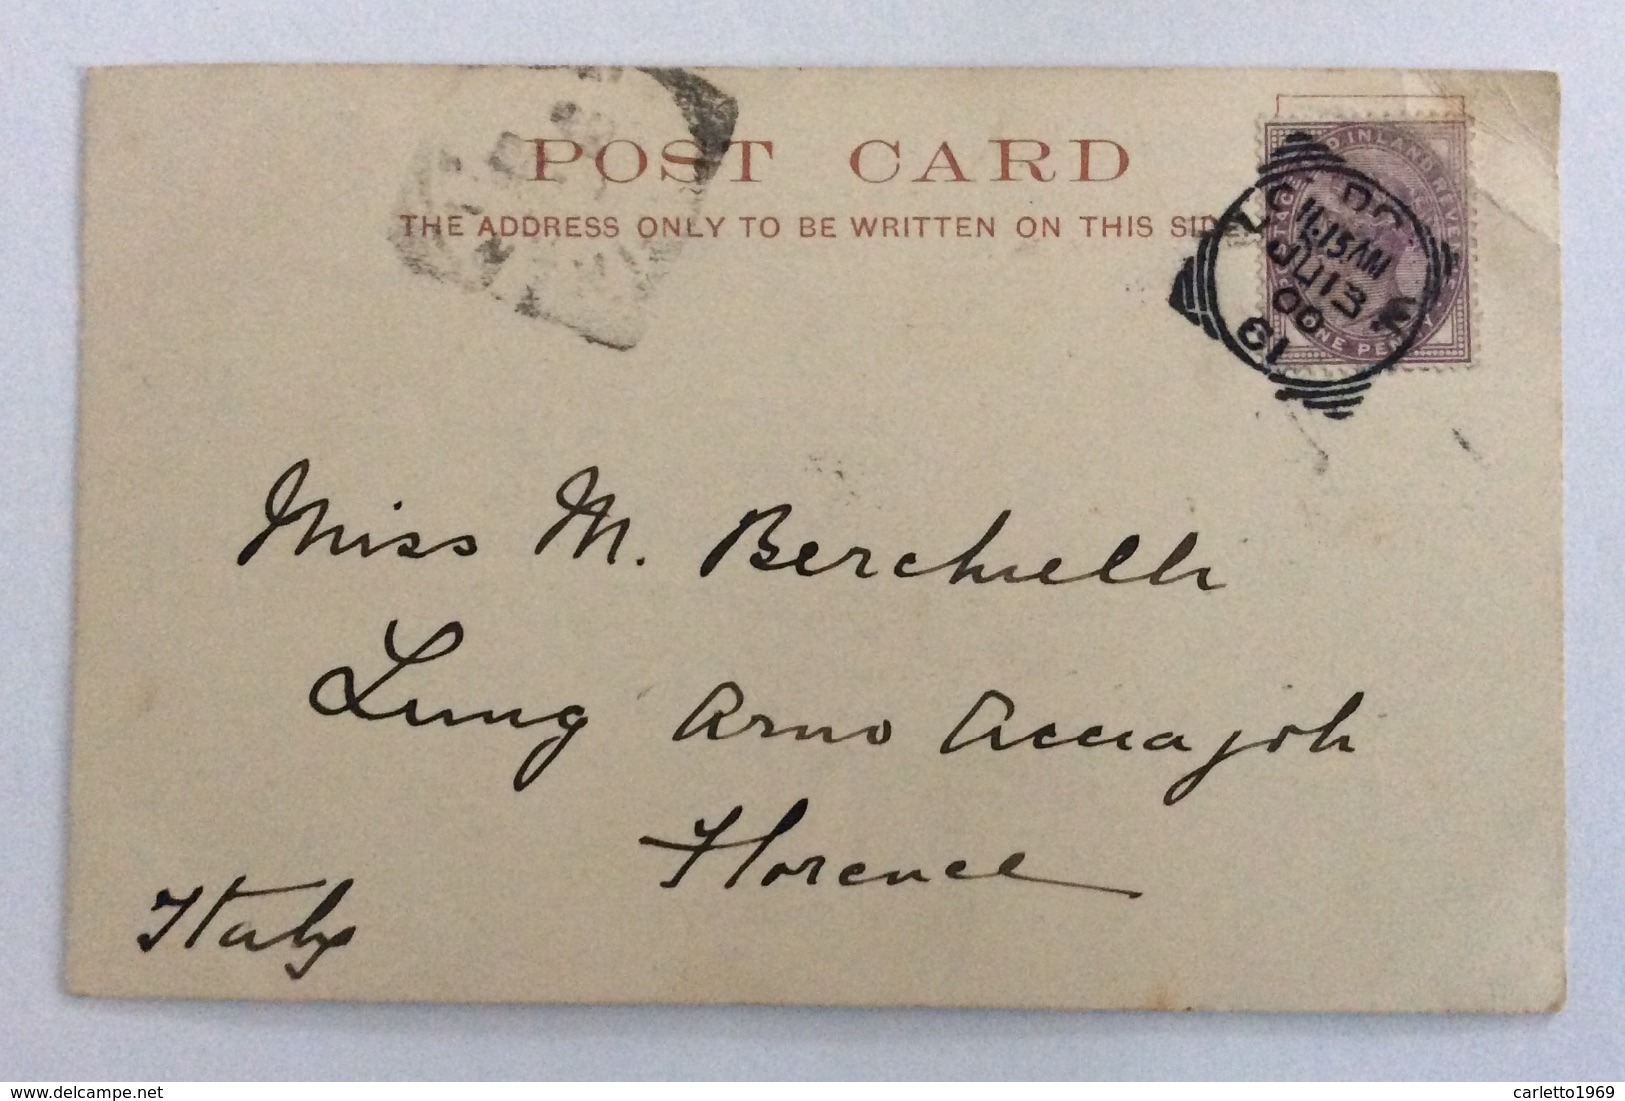 POST CARD
THE ADDRESS ONLY TO BE WRITTEN ON THIS SIDE
INLAND REVENUE
ONE PENNY
11.15 AM
JU 13
00
19
Miss M. Berchielli
Lung Arno Acciajoli
Florence
Italy
delcampe.net
carletto1969